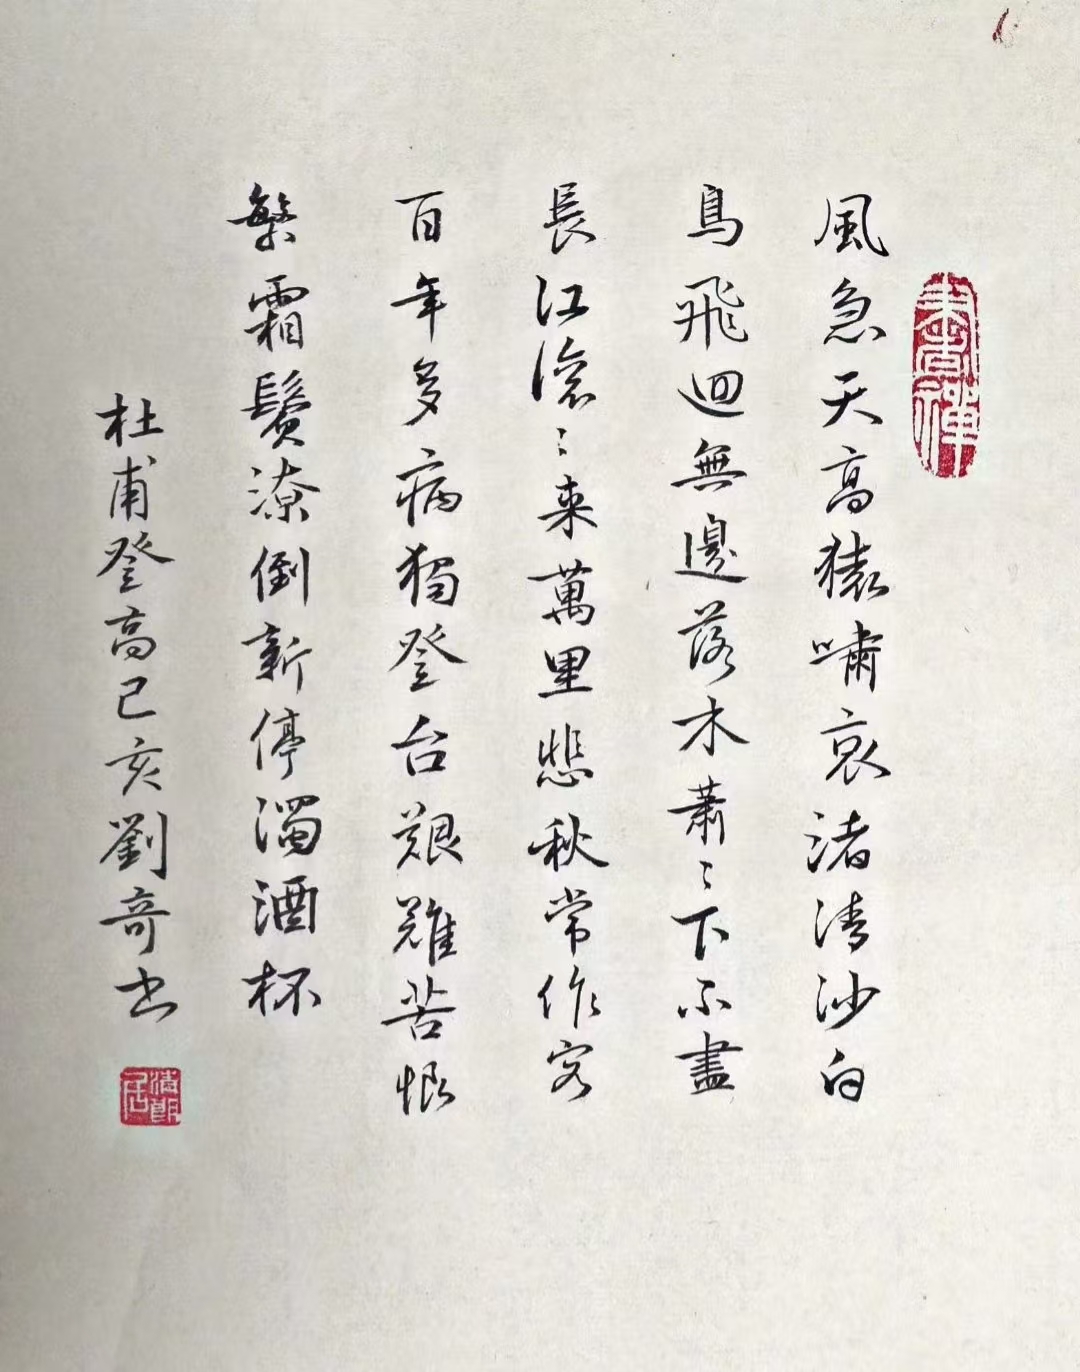 風急天高猿嘯哀渚清沙白
鳥飛迴無邊落木蕭〻下不盡
長江滾〻来萬里悲秋常作客
百年多病獨登台艱難苦恨
繁霜鬢潦倒新停濁酒杯
杜甫登高己亥劉奇书